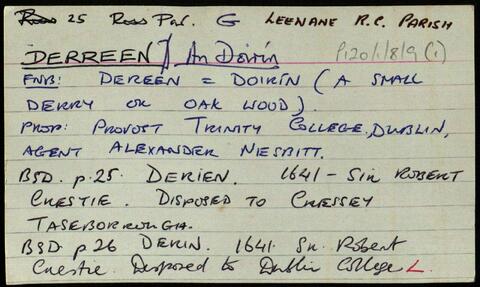 Ross 25 Ross Par. G LEENANE R.C. PARISH
DERREEN] An Doirín P120/1/8/9 (i)
FNB: DEREEN = DOIRÍN (A SMALL
DERRY OR OAK WOOD).
PROP: PROVOST TRINITY COLLEGE, DUBLIN,
AGENT ALEXANDER NESBITT.
BSD. p. 25. DERIEN. 1641 - SIR ROBERT
CRESTIE. DISPOSED TO CRESSEY
TASEBORROUGH.
BSD. p 26 DERIN. 1641. Sr. Robert
Crestie. Disposed to Dublin College L.